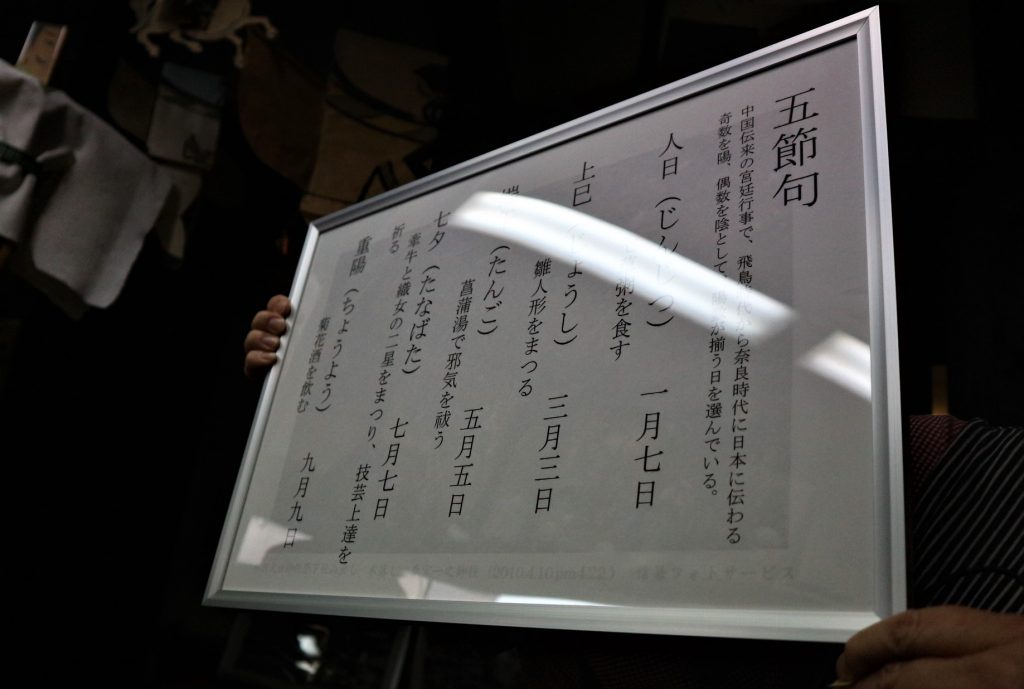 五節句
中国伝来の宮廷行事で、飛鳥時代から奈良時代に日本に伝わる
奇数を陽、偶数を陰として、陽が揃う日を選んでいる。
人日（じんじつ） 一月七日
粥を食す
上巳（じょうし） 三月三日
雛人形をまつる
（たんご） 五月五日
菖蒲湯で邪気を祓う
七夕（たなばた） 七月七日
牽牛と織女の二星をまつり、技芸上達を
祈る
重陽（ちょうよう） 九月九日
菊花酒を飲む
フォトサービス